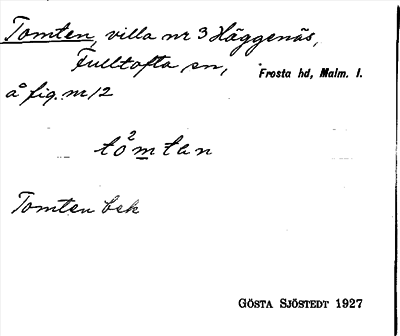 Tomten, villa nr 3 Häggenäs,
Fulltofta sn, Frosta hd, Malm. l.
å fig. nr 12
tô²mtan
Tomten bek
GÖSTA SJÖSTEDT 1927